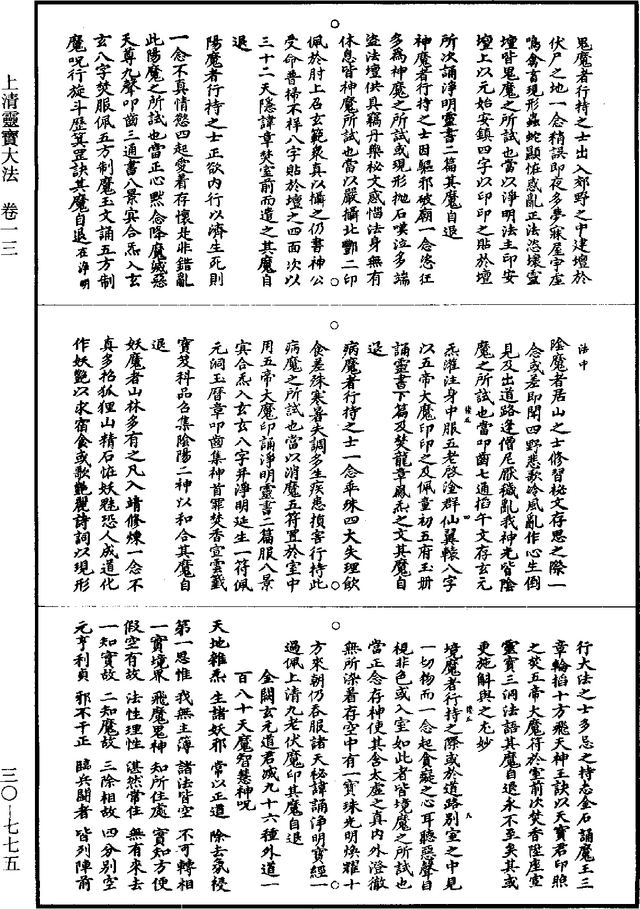 上清靈寶大法　卷一三
三〇—七七五
鬼魔者行持之士出入郊野之中建壇於
伏尸之地一念稍誤即夜多夢寐屋宇虛
鳴禽言現形蟲蛇顯怪惑亂正法恣壞靈
壇皆鬼魔之所試也當以淨明法主印安
壇上以元始安鎮四字以印印之貼於壇
所次誦淨明靈書二篇其魔自退
神魔者行持之士因驅邪破廟一念恣狂
多為神魔之所試或現形拋石嘆泣多端
盜法壇供具竊丹藥秘文惑惱法身無有
休息皆神魔所試也當以嚴攝北酆二印
佩於肘上召玄範眾真以攝之仍書神公
受命普掃不祥八字貼於壇之四面次以
三十二天隱諱章焚室前而遣之其魔自
退
陽魔者行持之士正欲內行以濟生死則
一念不真情慾四起愛着存懷是非錯亂
此陽魔之所試也當正心默念降魔滅惡
天尊九聲叩齒三通書八景冥合炁入玄
玄八字焚服佩五方制魔玉文誦五方制
魔呪行旋斗歷箕罡訣其魔自退在淨明
法中
陰魔者居山之士修習秘文存思之際一
念或差即聞四野悲歌冷風亂作心生倒
見及出道路逢僧尼厭穢亂我神光皆陰
魔之所試也當叩齒七通掐午文存玄元
炁灌注身中服五老啓塗群仙翼轅八字
以五帝大魔印印之及佩童初五府玉冊
誦靈書下篇及焚龍章鳳炁之文其魔自
退
病魔者行持之士一念乖殊四大失理飲
食差殊寒暑失調多生疾患損害行持此
病魔之所試也當以消魔五符置於室中
用五帝大魔印誦淨明靈書二篇服八景
冥合炁入玄玄八字并淨明延生一符佩
元洞玉曆章叩齒集神首罪焚香宣雲籤
寶笈科品召集陰陽二神以和合其魔自
退
妖魔者山林多有之凡入靖修煉一念不
真多招狐狸山精石怪妖魅恐人成道化
作妖艷以求宿食或歌艷麗詩詞以現形
行大法之士多忌之持志金石誦魔王三
章輪掐十方飛天神王訣以天寶君印照
之焚五帝大魔符於室前次焚香陞座宣
靈寶三洞法語其魔自退永不至矣其或
更施斛與之尤妙
境魔者行持之際或於道路別室之中見
一切物而一念起貪癡之心耳聽惡聲自
視非色或入室如此者皆境魔之所試也
當正念存神使其含太虛之真內外澄徹
無所染着存空中有一寶珠光明煥耀十
方來朝仍吞服諸天秘諱誦淨明寶經一
過佩上清九老伏魔印其魔自退
金闕玄元道君滅九十六種外道一
百八十天魔智慧神呪
天地雜炁　生諸妖邪　常以正道　除去氛祲
第一思惟　我無主薄　諸法皆空　不可轉相
一寶境界　飛魔鬼神　知所住處　實知方便
假空有故　法性理性　湛然常住　無有來去
一知實故　二知魔故　三除相故　四分別空
元亨利貞　邪不干正　臨兵鬭者　皆列陣前